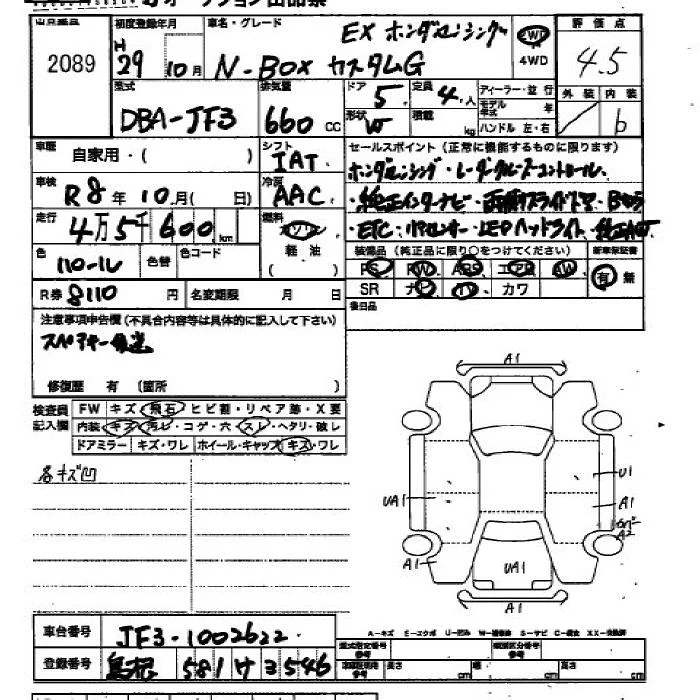 オークション出品票
出品番号 2089
初度登録年月 H 29 10月
車名・グレード N-BOX カスタムG EX ホンダセンシング
2WD
4WD
評価点 4.5
外装 内装 b
型式 DBA-JF3
排気量 660 CC
ドア 5
定員 4人
形状 W
積載 kg
ディーラー・並行
モデル年式 年
ハンドル 左・右
車歴 自家用・( )
シフト IAT
車検 R8年10月( 日)
冷房 AAC
走行 4万5千600 km
燃料 ガソリン
軽・油
( )
色 パール 色替 色コード
R券 8110 円 名変期限 月 日
セールスポイント(正常に機能するものに限ります)
ホンダセンシング・レーダークルーズコントロール
・純正インターナビ・両側スライドドア・Bカメラ
・ETC・パワセンサー・LEDヘッドライト・純正AW
装備品(純正品に限り○をつけてください) 新車保証書
PS PW ABS エアB AW 有 無
SR ナビ TV カワ
後日品
注意事項申告欄(不具合内容等は具体的に記入して下さい)
スペアキー後送
修復歴 有 (箇所 )
検査員記入欄
FW キズ・飛石・ヒビ割・リペア跡・X要
内装・キズ・汚レ・コゲ・穴・スレ・ヘタリ・破レ
ドアミラー キズ・ワレ ホイール・キャップ キズ・ワレ
各キズ凹
A1
U1
UA1
A1
A2
A1
UA1
A1
A-キズ E-エクボ U-凹み W-補修跡 S-サビ C-腐食 XX-交換済
車台番号 JF3-1002622
登録番号 島根 581 け 3546
型式指定番号 参考
類別区分番号 参考
長さ cm 幅 cm 高さ cm